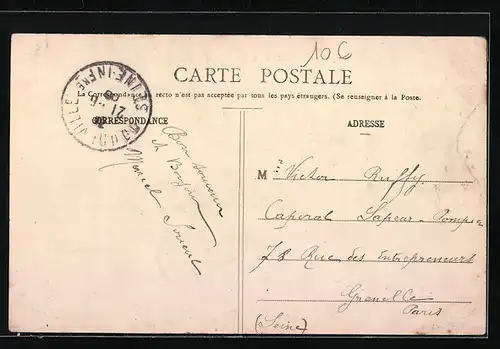 10 C
CARTE POSTALE
La Correspondance au recto n'est pas acceptée par tous les pays étrangers. (Se renseigner à la Poste.
CORRESPONDANCE
ADRESSE
Bon souvenir
et Bonjour
Marcel
M Victor Ruffy
Caporal Sapeur-Pompier
78 Rue des Entrepreneurs
Grenelle
Paris
(Seine)
SEINE INFRE
21